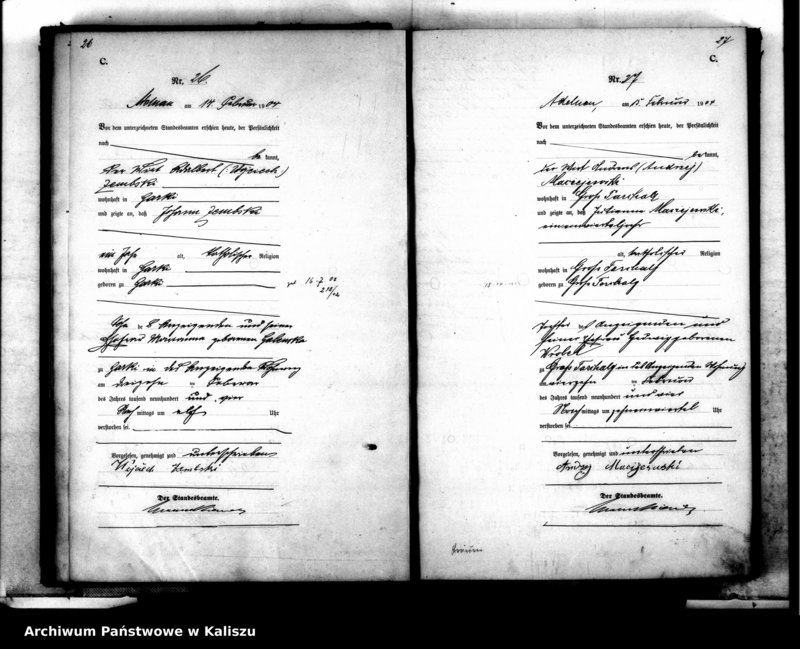 26
C.
Nr. 26.
Adelnau am 14 Februar 1904
Vor dem unterzeichneten Standesbeamten erschien heute, der Persönlichkeit
nach
be kannt,
der Wirt Adalbert (Wojciech)
Zembski
wohnhaft in Garki
und zeigte an, daß Johann Zembski
ein Jahr alt, katholischer Religion
wohnhaft in Garki
geboren zu Garki
Sohn des Anzeigenden und seiner
Ehefrau Marianna geborenen
zu Garki in des Anzeigenden Wohnung
am dreizehn ten Februar
des Jahres tausend neunhundert und vier
Nach mittags um elf Uhr
verstorben sei.
Vorgelesen, genehmigt und unterschrieben
Wojciech Zembski
Der Standesbeamte.
27
C.
Nr. 27
Adelnau, am 15 Februar 1904
Vor dem unterzeichneten Standesbeamten erschien heute, der Persönlichkeit
nach
be kannt,
der Wirt Andreas (Andrzej)
Maciejewski
wohnhaft in Groß Tarchaly
und zeigte an, daß Maciejewski,
alt, katholischer Religion
wohnhaft in Groß Tarchaly
geboren zu Groß Tarchaly
Tochter des Anzeigenden und
seiner Ehefrau Hedwig geborenen
zu Groß Tarchaly in des Anzeigenden Wohnung
am vierzehn ten Februar
des Jahres tausend neunhundert und vier
Nach mittags um zehneinviertel Uhr
verstorben sei.
Vorgelesen, genehmigt und unterschrieben
Andrzej Maciejewski
Der Standesbeamte.
Archiwum Państwowe w Kaliszu